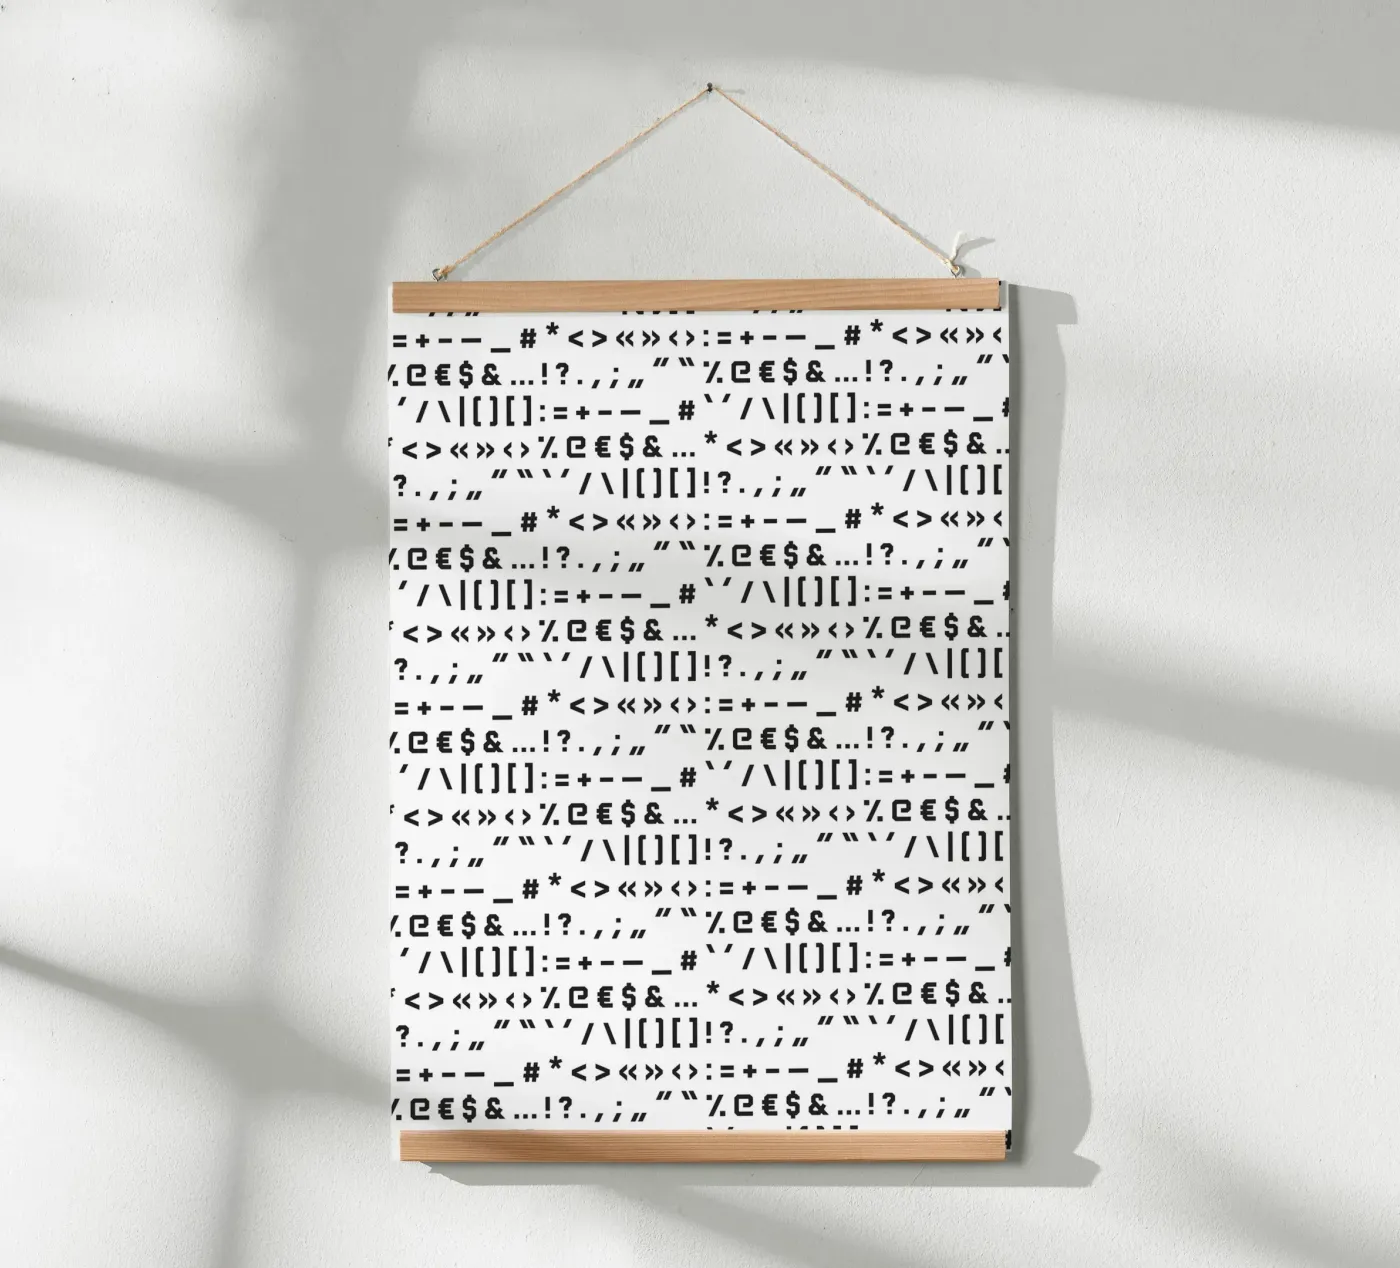 =+-—_#*<>«»‹›:=+-—_#*<>«»‹
%@€$&…!?.,;„“‟%@€$&…!?.,;„“‟
´/\|[][]:=+-—_#`´/\|[][]:=+-—_#
*<>«»‹›%@€$&…*<>«»‹›%@€$&…
?.,;„“‟`´/\|[][]!?.,;„“‟`´/\|[][
=+-—_#*<>«»‹›:=+-—_#*<>«»‹
%@€$&…!?.,;„“‟%@€$&…!?.,;„“‟
´/\|[][]:=+-—_#`´/\|[][]:=+-—_#
*<>«»‹›%@€$&…*<>«»‹›%@€$&…
?.,;„“‟`´/\|[][]!?.,;„“‟`´/\|[][
=+-—_#*<>«»‹›:=+-—_#*<>«»‹
%@€$&…!?.,;„“‟%@€$&…!?.,;„“‟
´/\|[][]:=+-—_#`´/\|[][]:=+-—_#
*<>«»‹›%@€$&…*<>«»‹›%@€$&…
?.,;„“‟`´/\|[][]!?.,;„“‟`´/\|[][
=+-—_#*<>«»‹›:=+-—_#*<>«»‹
%@€$&…!?.,;„“‟%@€$&…!?.,;„“‟
´/\|[][]:=+-—_#`´/\|[][]:=+-—_#
*<>«»‹›%@€$&…*<>«»‹›%@€$&…
?.,;„“‟`´/\|[][]!?.,;„“‟`´/\|[][
=+-—_#*<>«»‹›:=+-—_#*<>«»‹
%@€$&…!?.,;„“‟%@€$&…!?.,;„“‟